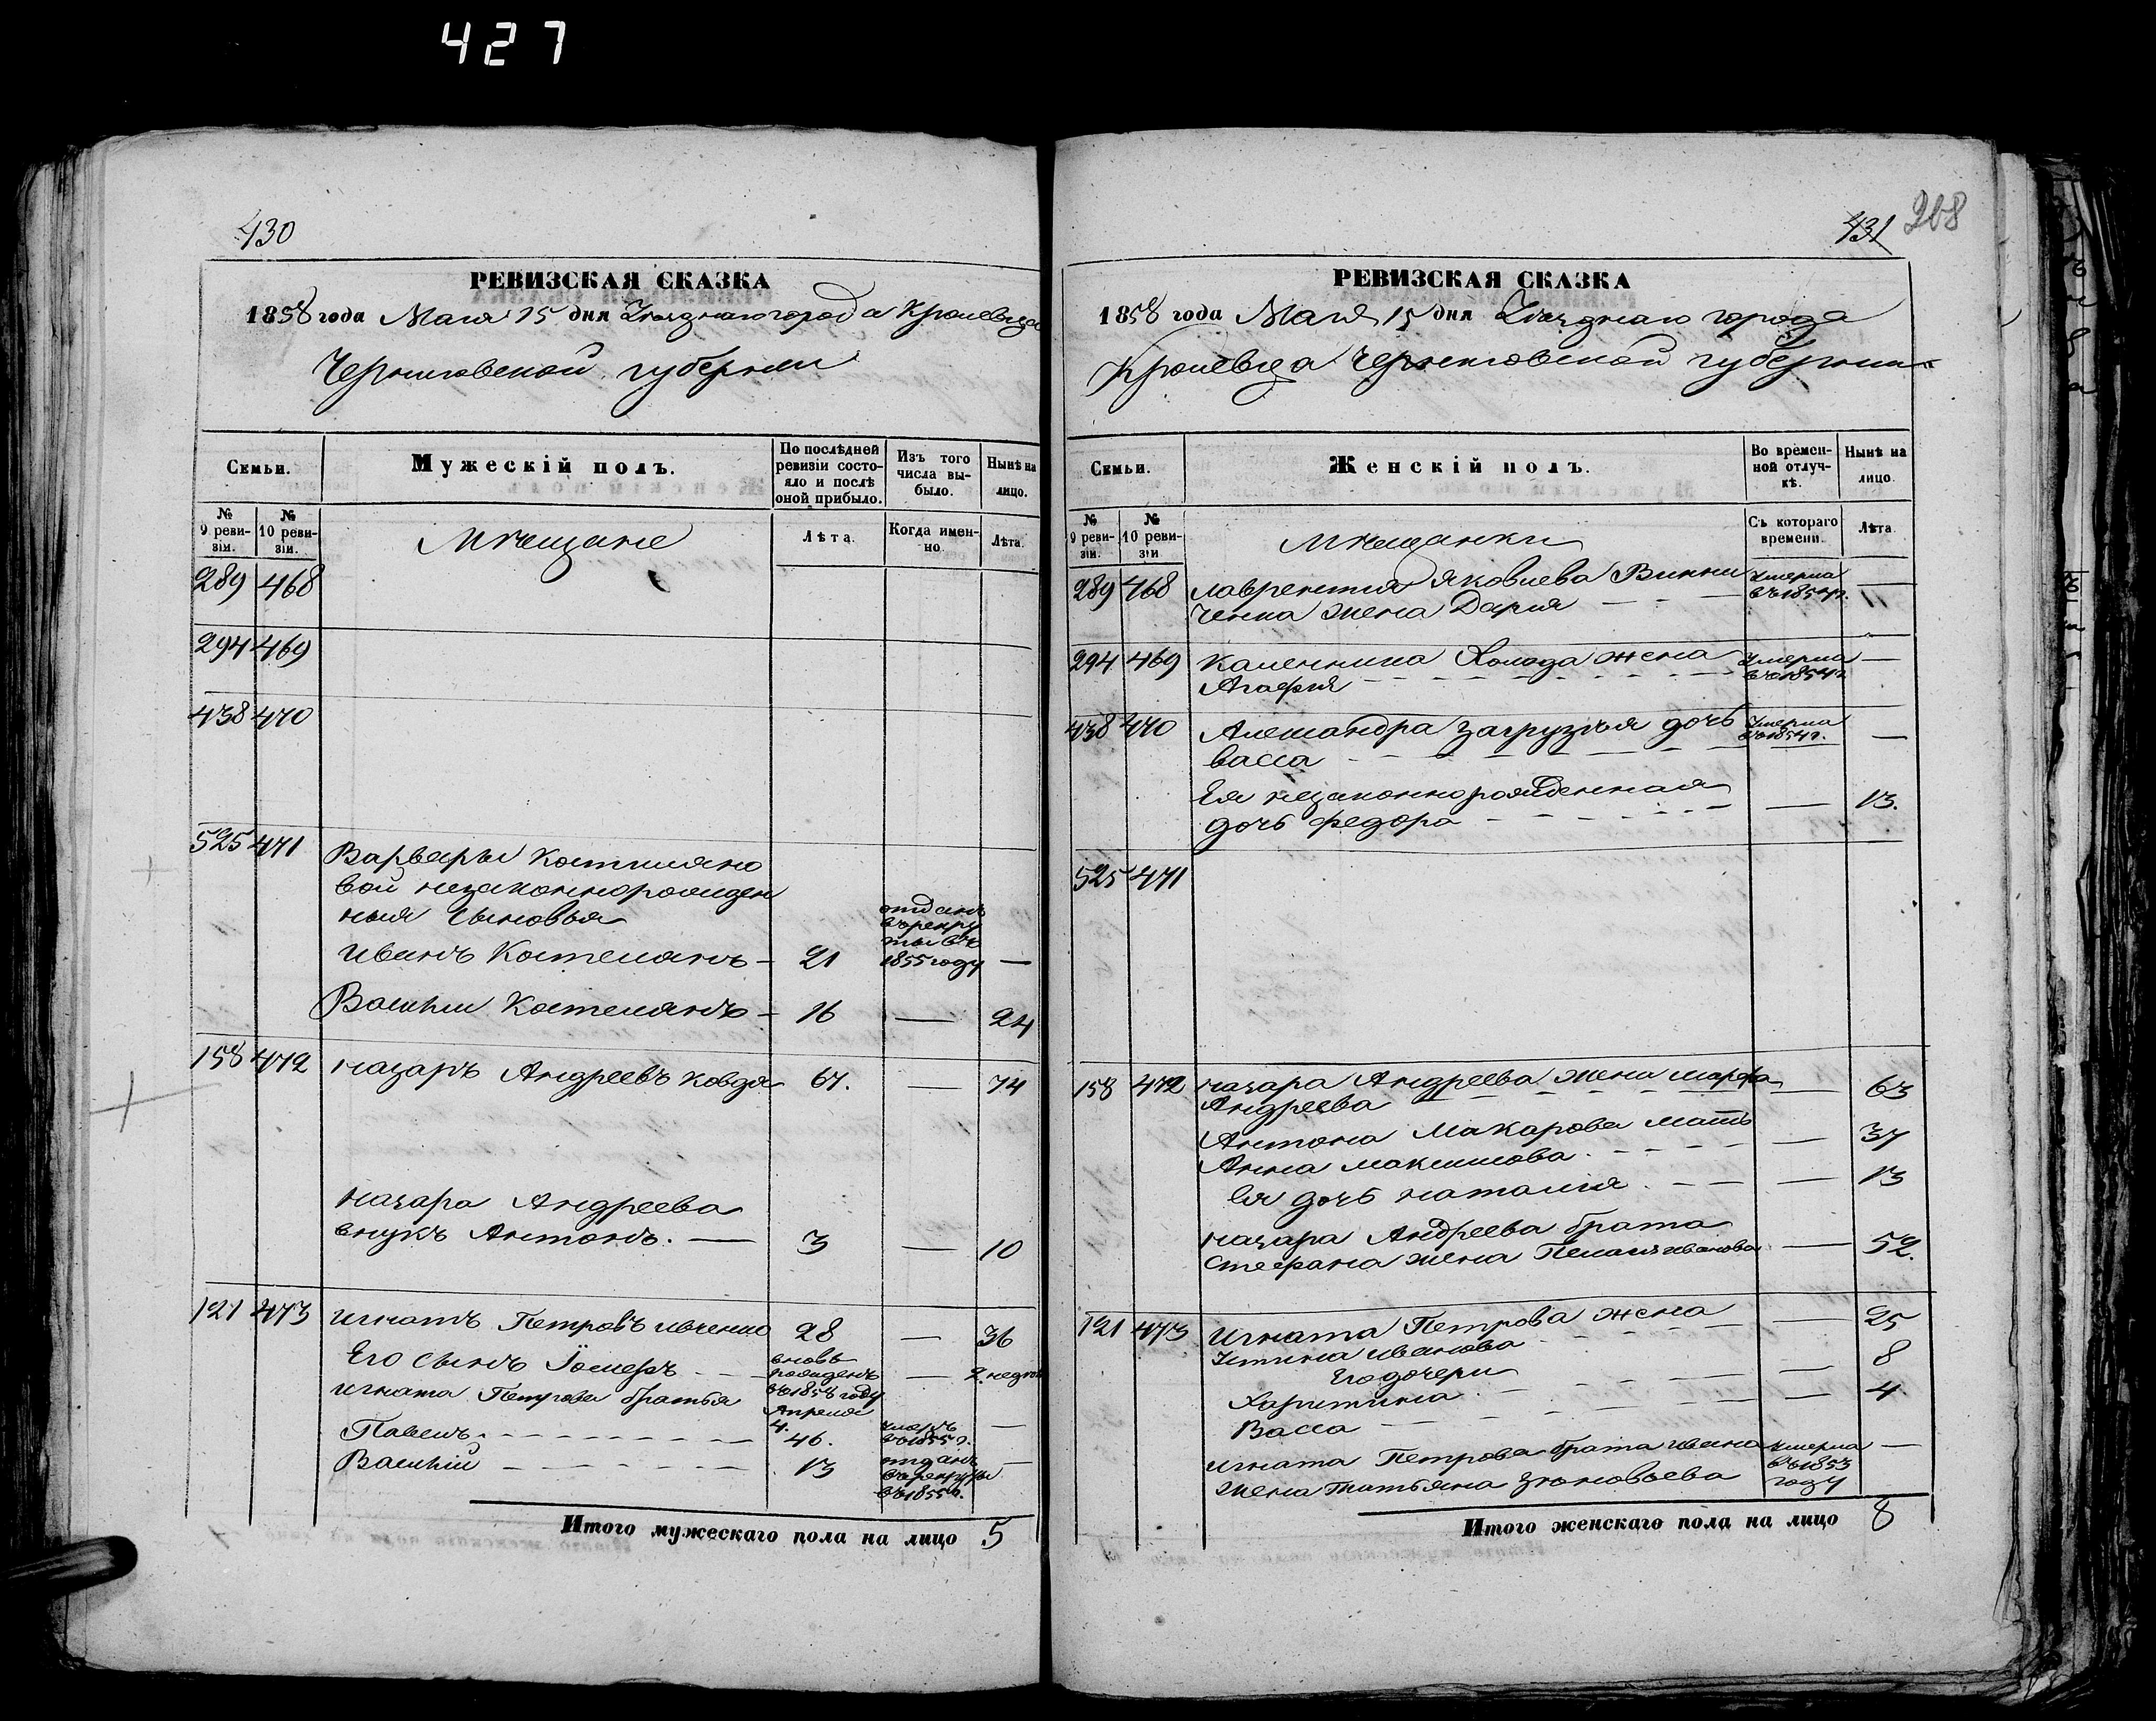 427
430
РЕВИЗСКАЯ СКАЗКА
1858 года Мая 15 дня Уѣзднаго города Кролевца
Черниговской губернии
Семьи.
Мужескій полъ.
По послѣдней ревизіи состояло и послѣ оной прибыло.
Изъ того числа выбыло.
Нынѣ на лицо.
№ 9 ревизіи.
№ 10 ревизіи.
Мѣщане
Лѣта.
Когда именно.
Лѣта.
289 468
294 469
438 470
525 471 Варвары Костиляно
вой незаконнорожден
ныя сыновья
Иванъ Костелянъ - 21 отданъ въ рекруты въ 1855 году —
Василій Костелянъ - 16 — 24
158 472 Назаръ Андреевъ Ковда 67. — 74
Назара Андреева
внукъ Антонъ. — 3 — 10
121 473 Игнатъ Петровъ Ивченко 28 — 36
Его сынъ Іосифъ - вновь рожденъ въ 1858 году Апреля 4. — 2 недѣли
Игната Петрова братья
Павелъ - - - 46. умеръ въ 1855 г. —
Василій - - - 13 отданъ въ рекруты въ 1855 г. —
Итого мужескаго пола на лицо 5
431 208
РЕВИЗСКАЯ СКАЗКА
1858 года Мая 15 дня Уѣзднаго города
Кролевца Черниговской губернии
Семьи.
Женскій полъ.
Во временной отлучкѣ.
Нынѣ на лицо.
№ 9 ревизіи.
№ 10 ревизіи
Мѣщанки
Съ котораго времени.
Лѣта.
289 468 Лаврентия Яковлева Винни
ченка жена Дария - - умерла въ 1854 г. —
294 469 Каленника Холода жена
Агафия - - - умерла въ 1854 г. —
438 470 Александра Загрузчя дочь
Васса - - - умерла въ 1854 г. —
Ея незаконнорожденная
дочь Федора - - - — 13.
525 471
158 472 Назара Андреева жена Марфа
Андреева - - - — 63
Антона Макарова мать
Анна Максимова. - - - — 37
Ея дочь Наталия. - - — 13
Назара Андреева брата
Стефана жена Пелагия Иванова — 52.
121 473 Игната Петрова жена
Устина Иванова - - - — 25
Его дочери
Харитина - - - — 8
Васса - - - — 4
Игната Петрова брата Ивана
жена Татьяна Зѣновьева умерла въ 1853 году —
Итого женскаго пола на лицо 8